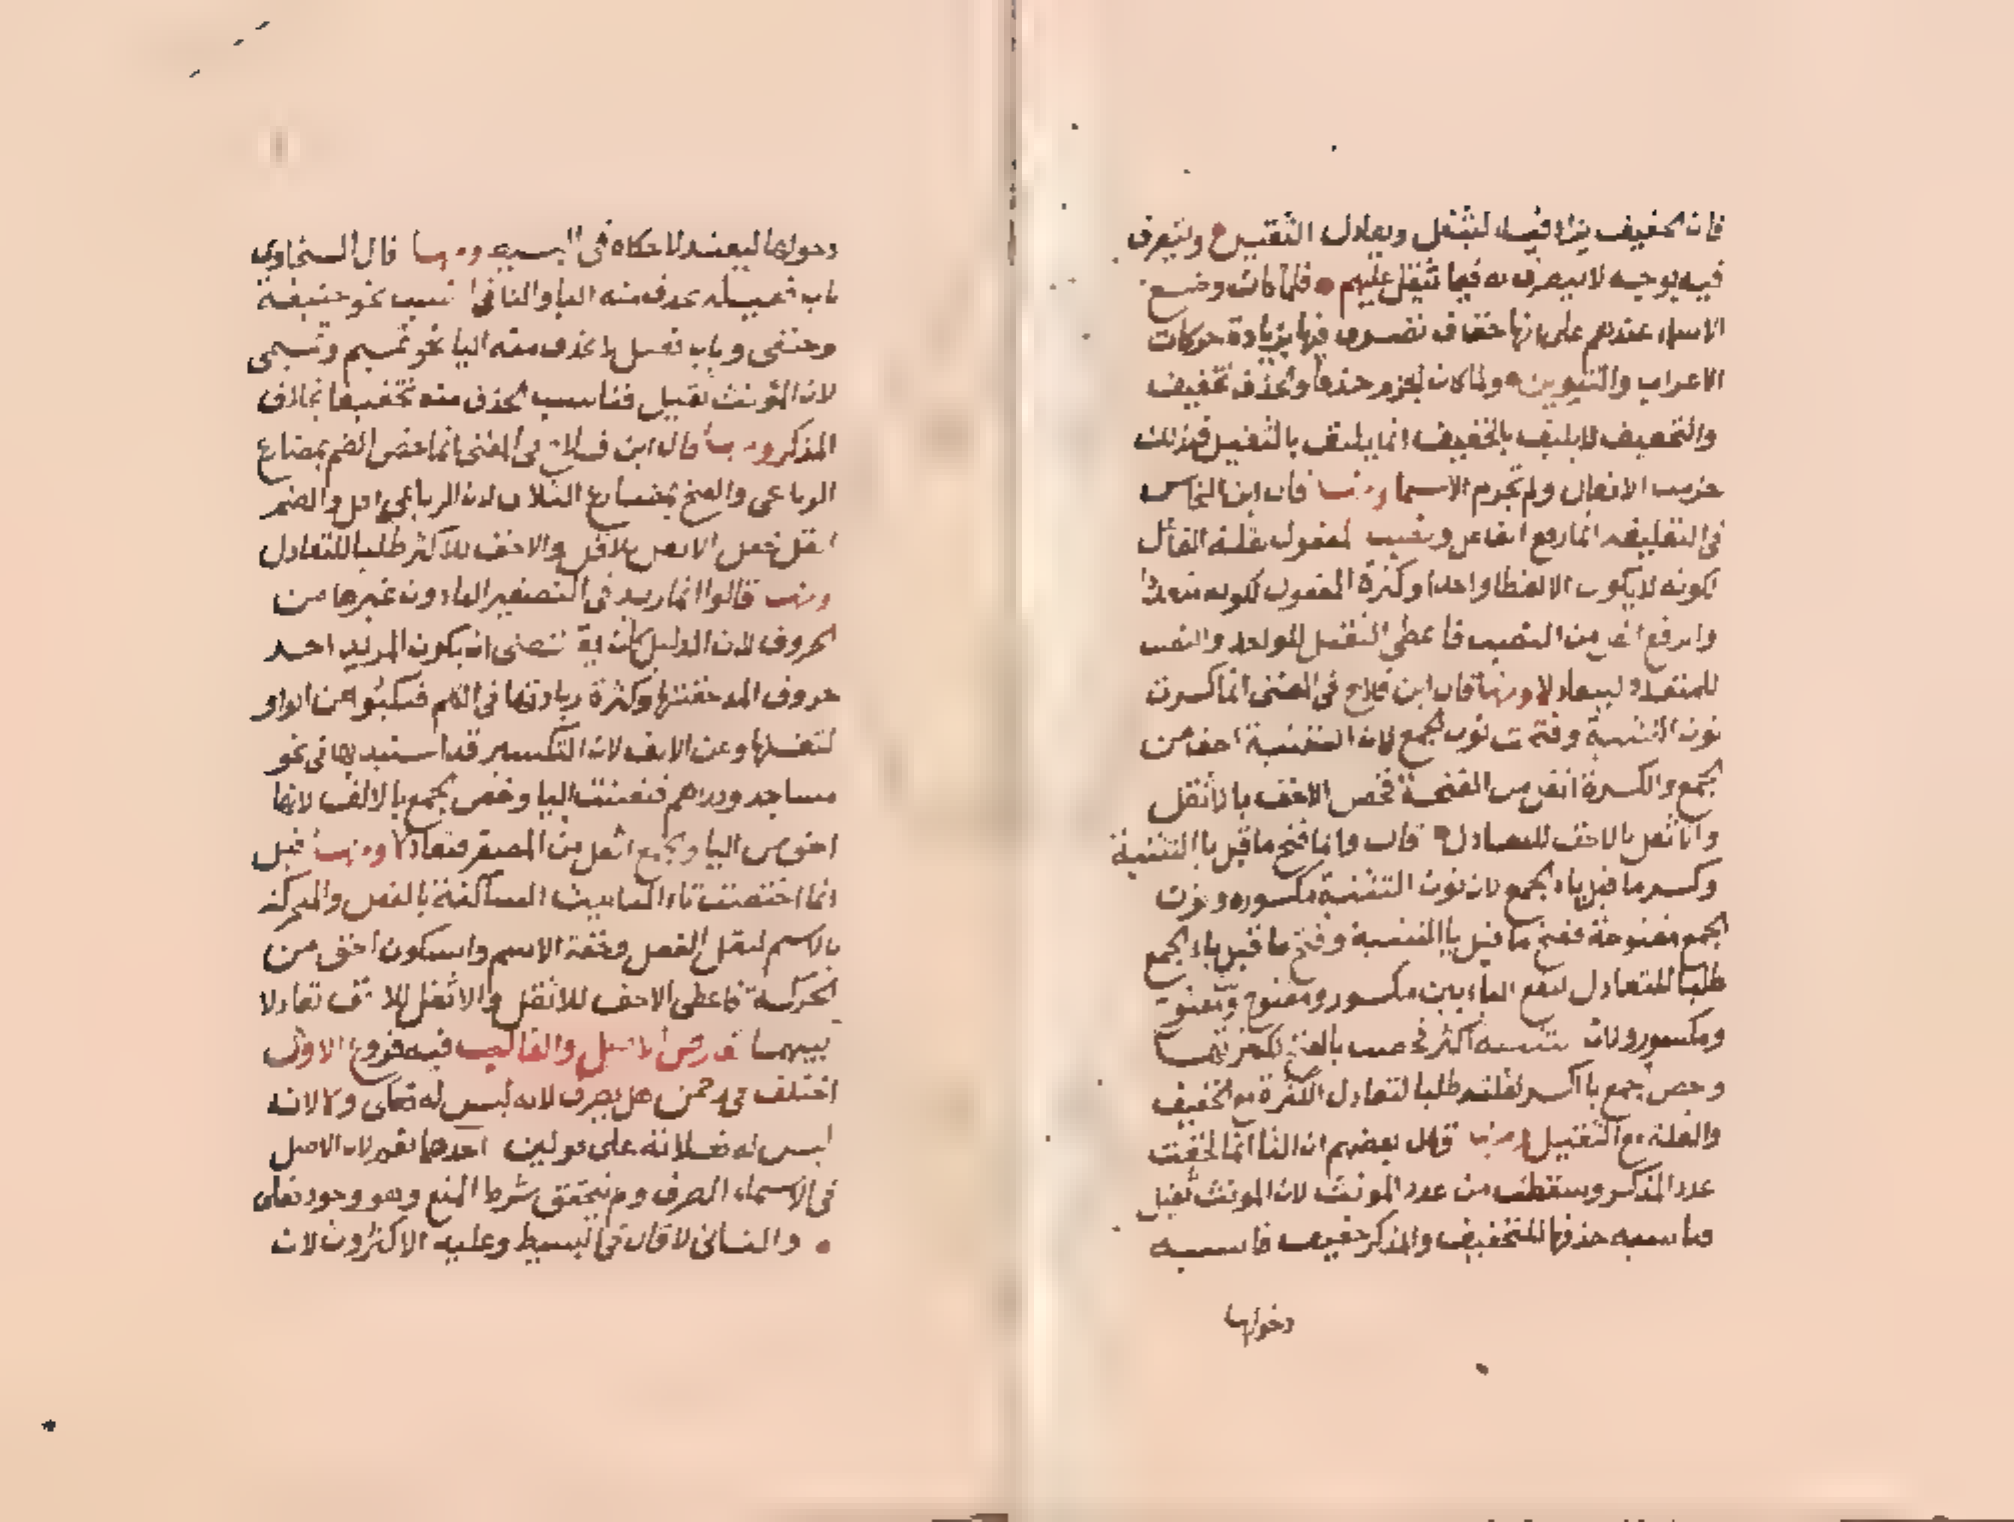 فان الخفيف يزاد فيه ليثقل ويعادل الثقيل ويتصرف
فيه بوجه لا يتصرف به فيما تثقل عليهم فلما كانت وضع
الاسماء عندهم على انها خفاف تصرف فيها بزيادة حركات
الاعراب والتنوين ولما كان الجزم حذفا والحذف تخفيف
والتخفيف لا يليق بالخفيف انما يليق بالثقيل فلذلك
جزمت الافعال ولم تجزم الاسما ومنها قال ابن النحاس
في التعليقه انما رفع الفاعل ونصب المفعول لقلة الفاعل
لكونه لا يكون الا لفظا واحدا وكثرة المفعول لكونه متعددا
والرفع اثقل من النصب فاعطى الثقيل للواحد والنصب
للمتعدد ليتعادلا ومنها قال ابن فلاح في المغنى انما كسرت
نون التثنية وفتحت نون الجمع لان التثنية اخف من
الجمع والكسرة اثقل من الفتحة فخص الاخف بالاثقل
والاثقل بالاخف للتعادل قال وانما فتح ما قبل يا التثنية
وكسر ما قبل ياء الجمع لان نون التثنية مكسوره ونون
الجمع مفتوحة ففتح ما قبل يا التثنية وفتح ما قبل ياء الجمع
طلبا للتعادل لتقع الياء بين مكسور ومفتوح ومفتوح
ومكسور ولان التثنية اكثر فخصت بالفتح لكثرتها
وخص الجمع بالكسر لقلته طلبا لتعادل الكثرة مع الخفيف
والقلة مع الثقيل ومنها قال بعضهم ان التا انما لحقت
عدد المذكر وسقطت من عدد المونث لان المونث ثقيل
فناسبه حذفها للتخفيف والمذكر خفيف فناسبه
دخولها
دخولها ليعتدلا حكاه في البسيط ومنها قال السخاوي
باب فعيله تحذف منه اليا والتا في النسب نحو حنيفة
وحنفى وباب فعيل لا تحذف منه اليا نحو تميم وتميمى
لان المونث ثقيل فناسب الحذف منه تخفيفا بخلاف
المذكر ومنها قال ابن فلاح في المغنى انما خص الضم بمضارع
الرباعى والفتح بمضارع الثلاثى لان الرباعي اقل والضم
اثقل فجعل الاثقل للاقل والاخف للاكثر طلبا للتعادل
ومنها قالوا انما زيد في التصغير الياء دون غيرها من
الحروف لان الدليل كان يقتضى ان يكون المزيد احد
حروف المد لخفتها وكثرة زيادتها في الكلم فنكبوا عن الواو
لثقلها وعن الالف لان التكسير قد استبد بها في نحو
مساجد ودراهم فتعينت اليا وخص الجمع بالالف لانها
اخف من اليا والجمع اثقل من المصغر فتعادلا ومنها قيل
انما اختصت تاء التانيث الساكنة بالفعل والمتحركة
بالاسم لثقل الفعل وخفة الاسم والسكون اخف من
الحركة فاعطى الاخف للاثقل والاثقل للاخف تعادلا
بينهما تعارض الاصل والغالب فيه فروع الاول
اختلف في رحمن هل يصرف لانه ليس له فعلى اولا لانه
ليس له فعلانة على قولين احدهما نعم لان الاصل
في الاسماء الصرف ولم يتحقق شرط المنع وهو وجود فعلى
والثانى لا قال في البسيط وعليه الاكثرون لان